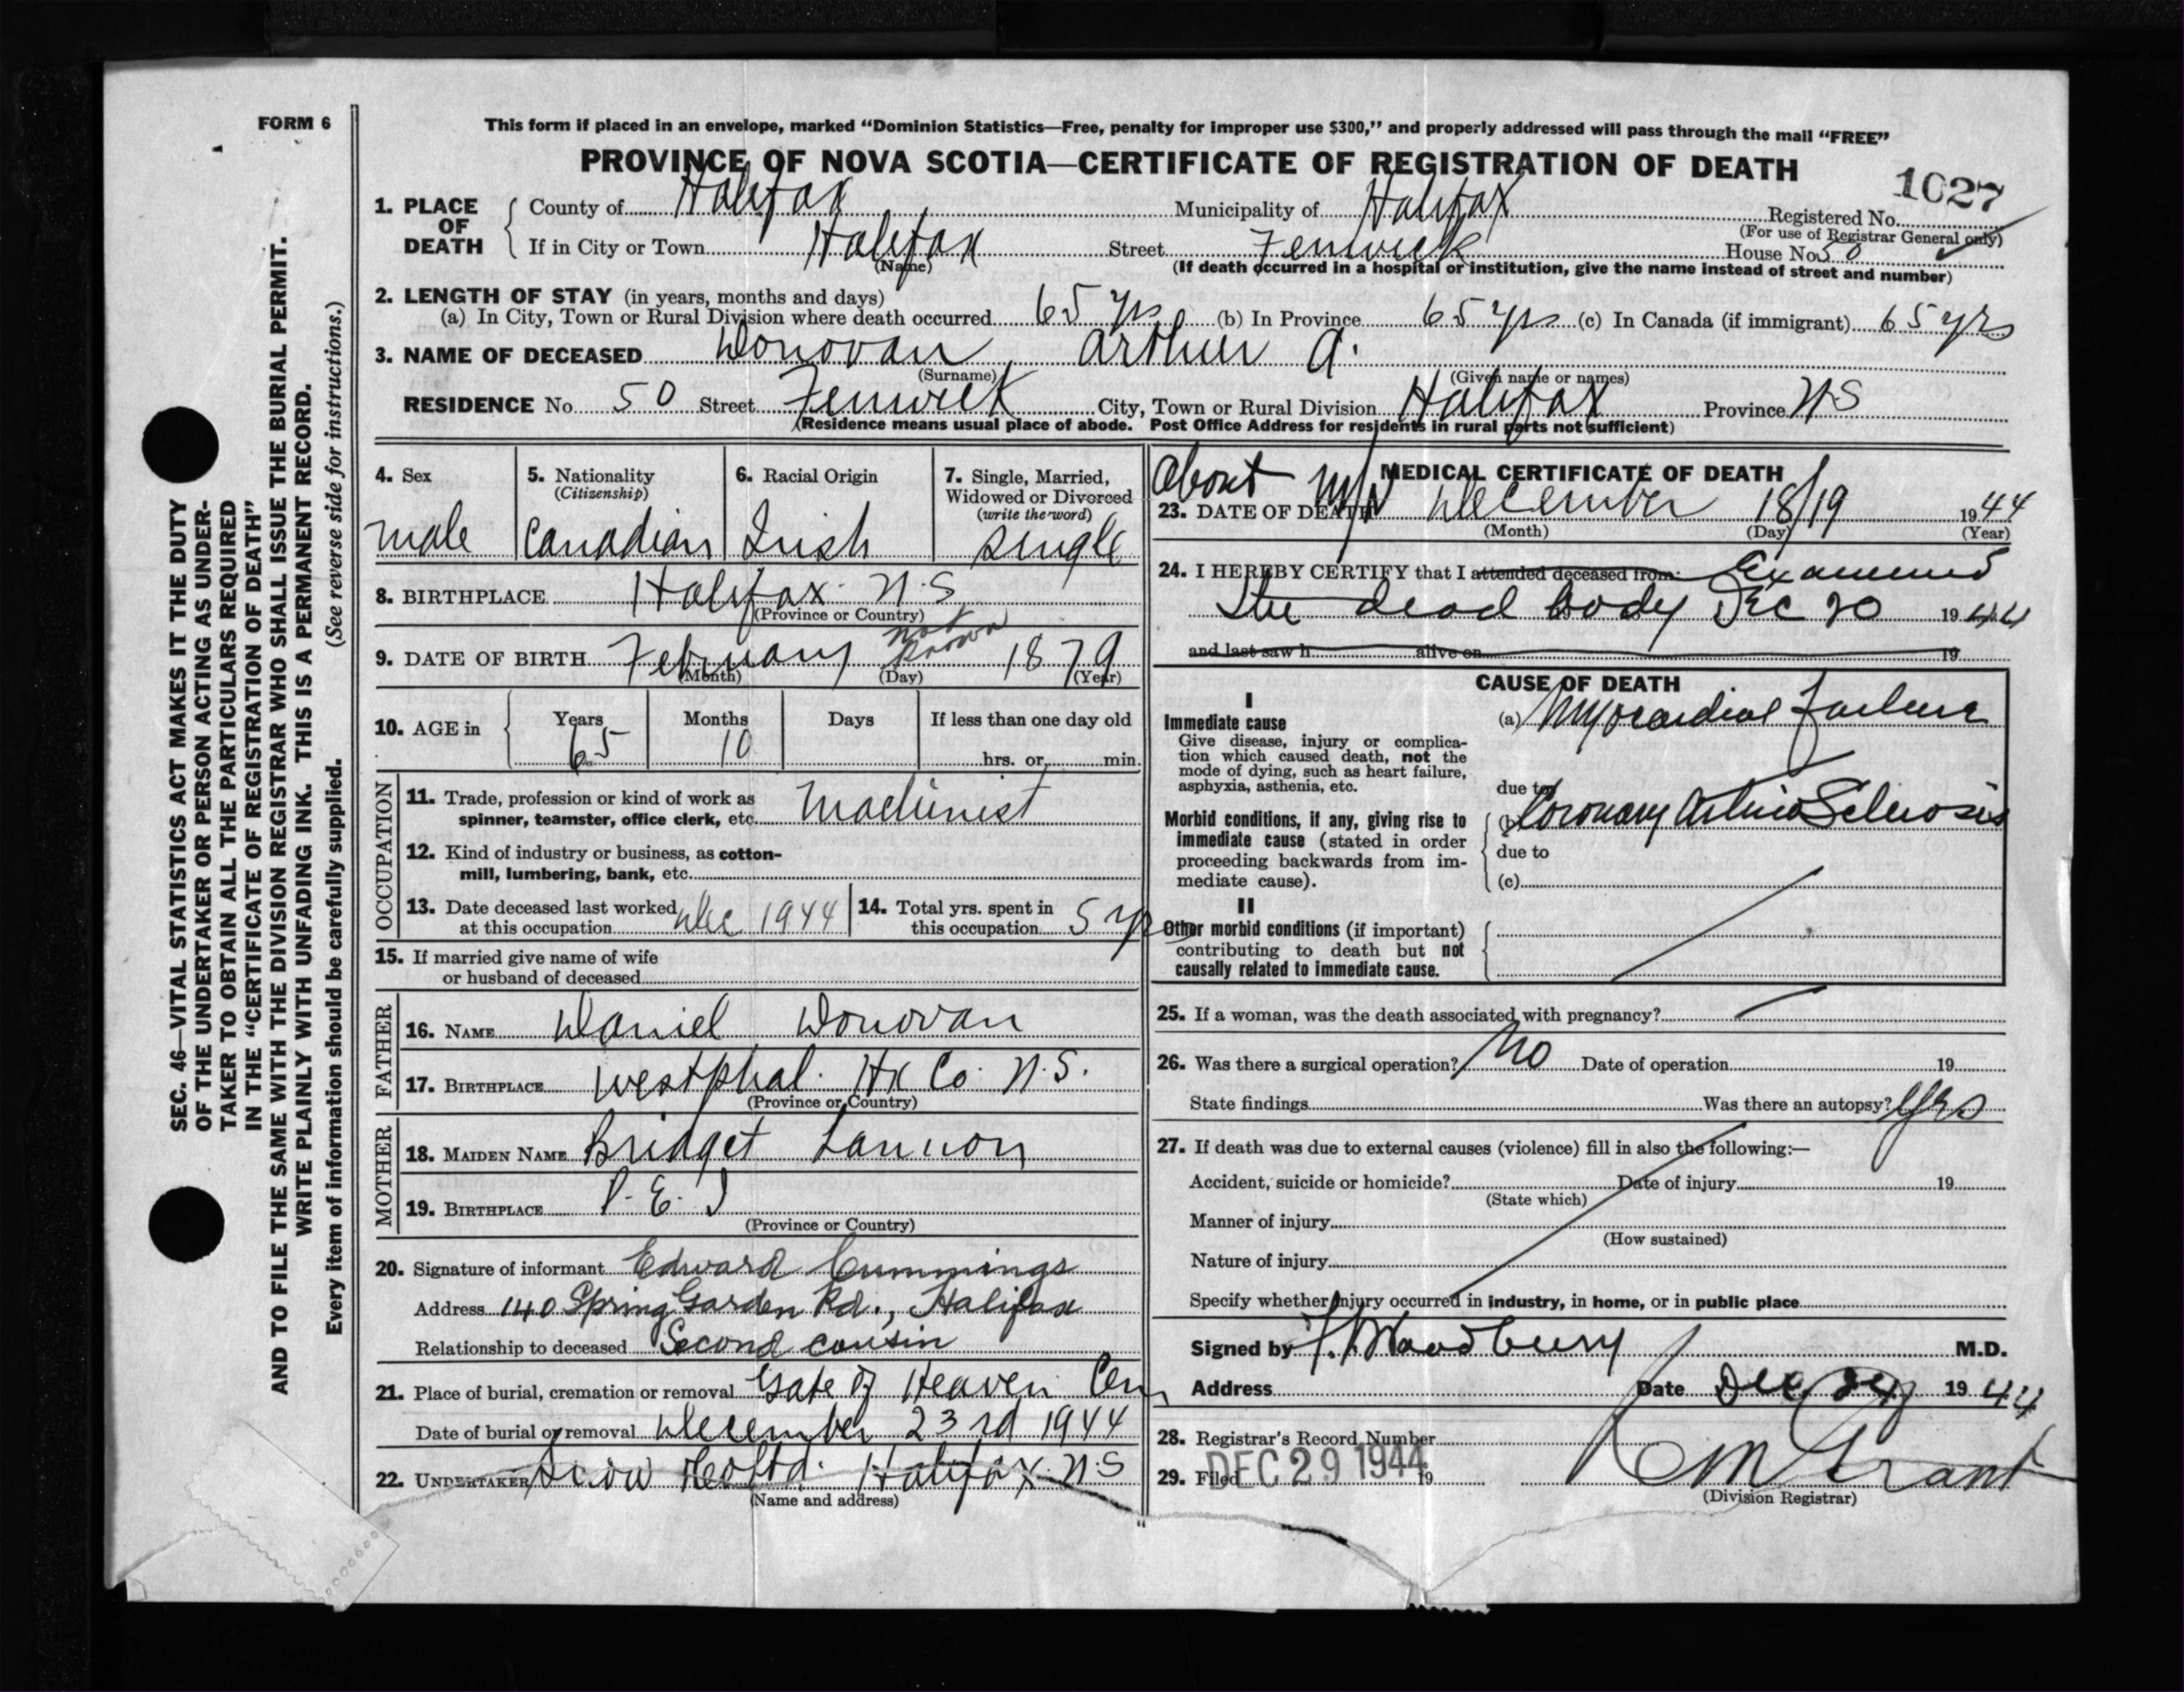 FORM 6
This form if placed in an envelope, marked "Dominion Statistics—Free, penalty for improper use $300," and properly addressed will pass through the mail "FREE"
PROVINCE OF NOVA SCOTIA—CERTIFICATE OF REGISTRATION OF DEATH
1027
1. PLACE OF DEATH County of Halifax Municipality of Halifax Registered No.
(For use of Registrar General only)
If in City or Town Halifax Street Fenwick House No. 50
(Name) (If death occurred in a hospital or institution, give the name instead of street and number)
2. LENGTH OF STAY (in years, months and days)
(a) In City, Town or Rural Division where death occurred 65 yrs (b) In Province 65 yrs (c) In Canada (if immigrant) 65 yrs
3. NAME OF DECEASED Donovan, Arthur A.
(Surname) (Given name or names)
RESIDENCE No. 50 Street Fenwick City, Town or Rural Division Halifax Province N.S
(Residence means usual place of abode. Post Office Address for residents in rural parts not sufficient)
4. Sex
male
5. Nationality
(Citizenship)
Canadian
6. Racial Origin
Irish
7. Single, Married, Widowed or Divorced
(write the word)
single
8. BIRTHPLACE Halifax N.S
(Province or Country)
9. DATE OF BIRTH February not known 1879
(Month) (Day) (Year)
10. AGE in Years Months Days If less than one day old
65 10 hrs. or min.
OCCUPATION
11. Trade, profession or kind of work as spinner, teamster, office clerk, etc. Machinist
12. Kind of industry or business, as cotton-mill, lumbering, bank, etc.
13. Date deceased last worked at this occupation Dec 1944
14. Total yrs. spent in this occupation 5 yr
15. If married give name of wife or husband of deceased
FATHER
16. NAME Daniel Donovan
17. BIRTHPLACE Westphal. Hx Co. N.S.
(Province or Country)
MOTHER
18. MAIDEN NAME Bridget Lannon
19. BIRTHPLACE P.E.I
(Province or Country)
20. Signature of informant Edward Cummings
Address 140 Spring Garden Rd., Halifax
Relationship to deceased Second cousin
21. Place of burial, cremation or removal Gate of Heaven Cem
Date of burial or removal December 23rd 1944
22. UNDERTAKER Snow & Co Ltd. Halifax N.S
(Name and address)
MEDICAL CERTIFICATE OF DEATH
About M/N
23. DATE OF DEATH December 18/19 1944
(Month) (Day) (Year)
24. I HEREBY CERTIFY that I attended deceased from: Examined
the dead body Dec 20 1944
and last saw h alive on 19
CAUSE OF DEATH
I
Immediate cause
Give disease, injury or complication which caused death, not the mode of dying, such as heart failure, asphyxia, asthenia, etc.
(a) Myocardial failure
due to
Morbid conditions, if any, giving rise to immediate cause (stated in order proceeding backwards from immediate cause).
(b) Coronary Arterio Sclerosis
due to
(c)
II
Other morbid conditions (if important) contributing to death but not causally related to immediate cause.
25. If a woman, was the death associated with pregnancy?
26. Was there a surgical operation? No Date of operation 19
State findings Was there an autopsy? Yes
27. If death was due to external causes (violence) fill in also the following:—
Accident, suicide or homicide? Date of injury 19
(State which)
Manner of injury
(How sustained)
Nature of injury
Specify whether injury occurred in industry, in home, or in public place
Signed by Woodbury M.D.
Address Date Dec 1944
28. Registrar's Record Number
29. Filed DEC 29 1944 19 Grant
(Division Registrar)
SEC. 46—VITAL STATISTICS ACT MAKES IT THE DUTY
OF THE UNDERTAKER OR PERSON ACTING AS UNDER-
TAKER TO OBTAIN ALL THE PARTICULARS REQUIRED
IN THE "CERTIFICATE OF REGISTRATION OF DEATH"
AND TO FILE THE SAME WITH THE DIVISION REGISTRAR WHO SHALL ISSUE THE BURIAL PERMIT.
WRITE PLAINLY WITH UNFADING INK. THIS IS A PERMANENT RECORD.
Every item of information should be carefully supplied. (See reverse side for instructions.)